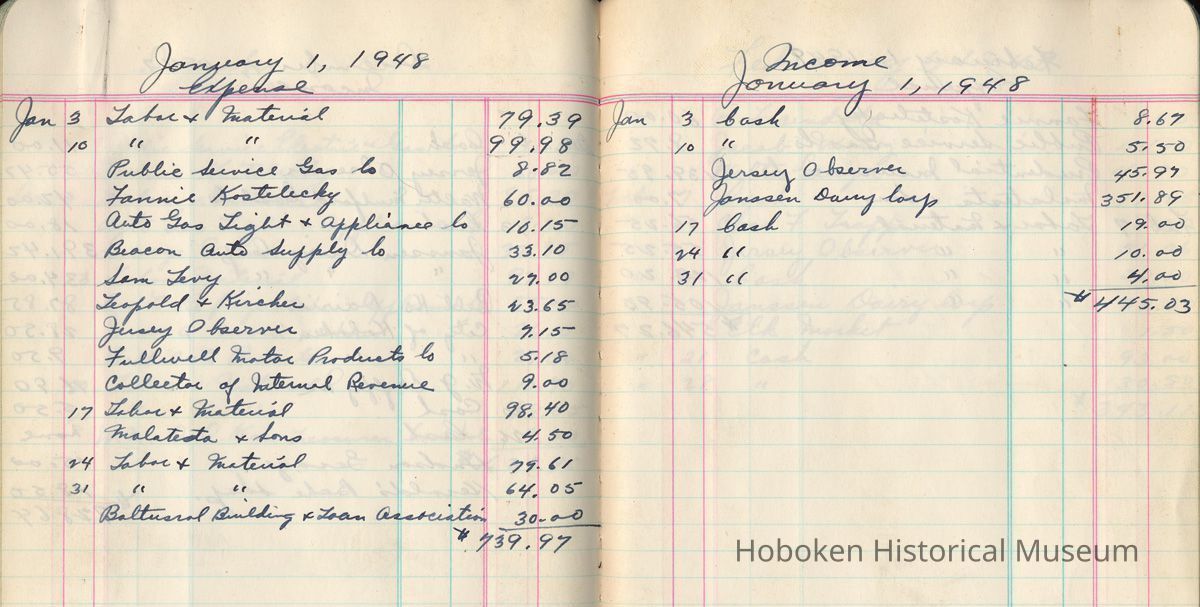 January 1, 1948
Expense
Jan 3 Labor & Material 79.39
10 " " 99.98
Public Service Gas Co 8.82
Fannie Kostelecky 60.00
Auto Gas Light & Appliance Co 10.15
Beacon Auto Supply Co 33.10
Sam Levy 27.00
Leopold & Kircher 23.65
Jersey Observer 7.15
Fullwell Motor Products Co 5.18
Collector of Internal Revenue 9.00
17 Labor & Material 98.40
Malatesta & Sons 4.50
24 Labor & Material 79.61
31 " " 64.05
Baltusrol Building & Loan Association 30.00
$ 739.97
Income
January 1, 1948
Jan 3 Cash 8.67
10 " 5.50
Jersey Observer 45.97
Janssen Dairy Corp 351.89
17 Cash 19.00
24 " 10.00
31 " 4.00
$ 445.03
Hoboken Historical Museum